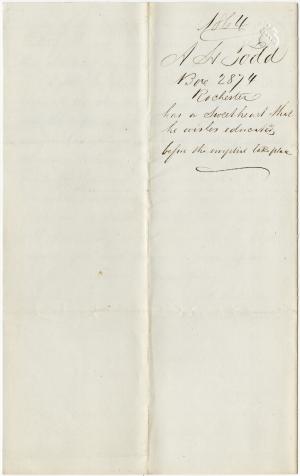 1864
A W Todd
Box 2874
Rochester
has a Sweetheart that
he wishes educated,
before the nuptial take place